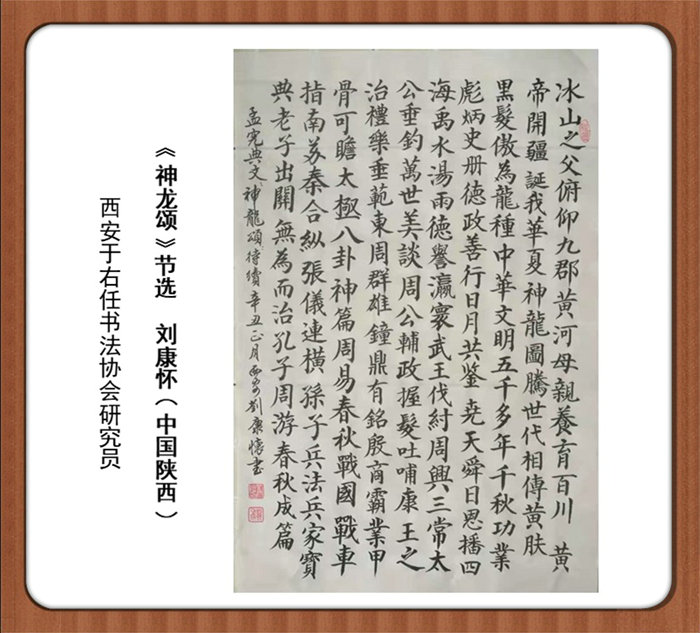 冰山之父俯仰九郡黄河母親養育百川 黄
帝開疆 誕我華夏神龍圖騰世代相傳黄膚
黑髮傲為龍種中華文明五千多年千秋功業
彪炳史册德政善行日月共鉴 尭天舜日恩播四
海禹水湯雨德譽瀛寰武王伐紂周興三常太
公垂釣萬世美談周公輔政握髮吐哺康王之
治禮樂垂範東周群雄鐘鼎有銘殷商霸業甲
骨可瞻太極八卦神篇周易春秋戰國 戰車
指南苏秦合纵張儀連横 孫子兵法兵家寳
典老子出関無為而治孔子周游春秋成篇
孟宪典文 神龍頌 待續 辛丑正月 西安劉康懷書
《神龙颂》节选 刘康怀（中国陕西）
西安于右任书法协会研究员